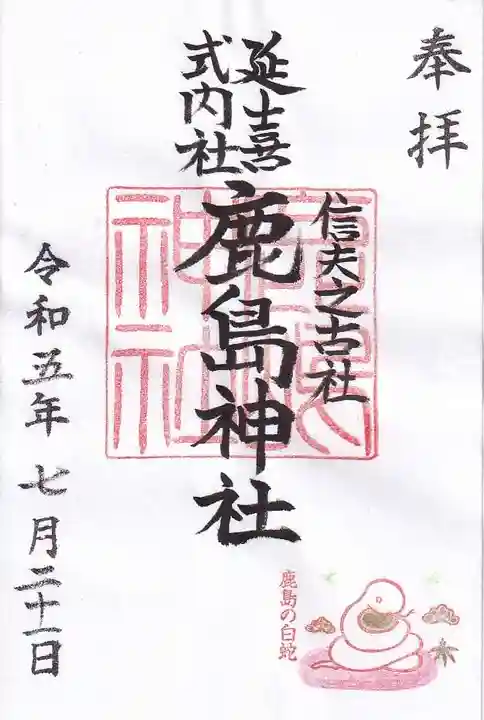 奉拝
信夫之古社
延喜
式内社
鹿島神社
令和五年 七月二十一日
鹿島の白蛇